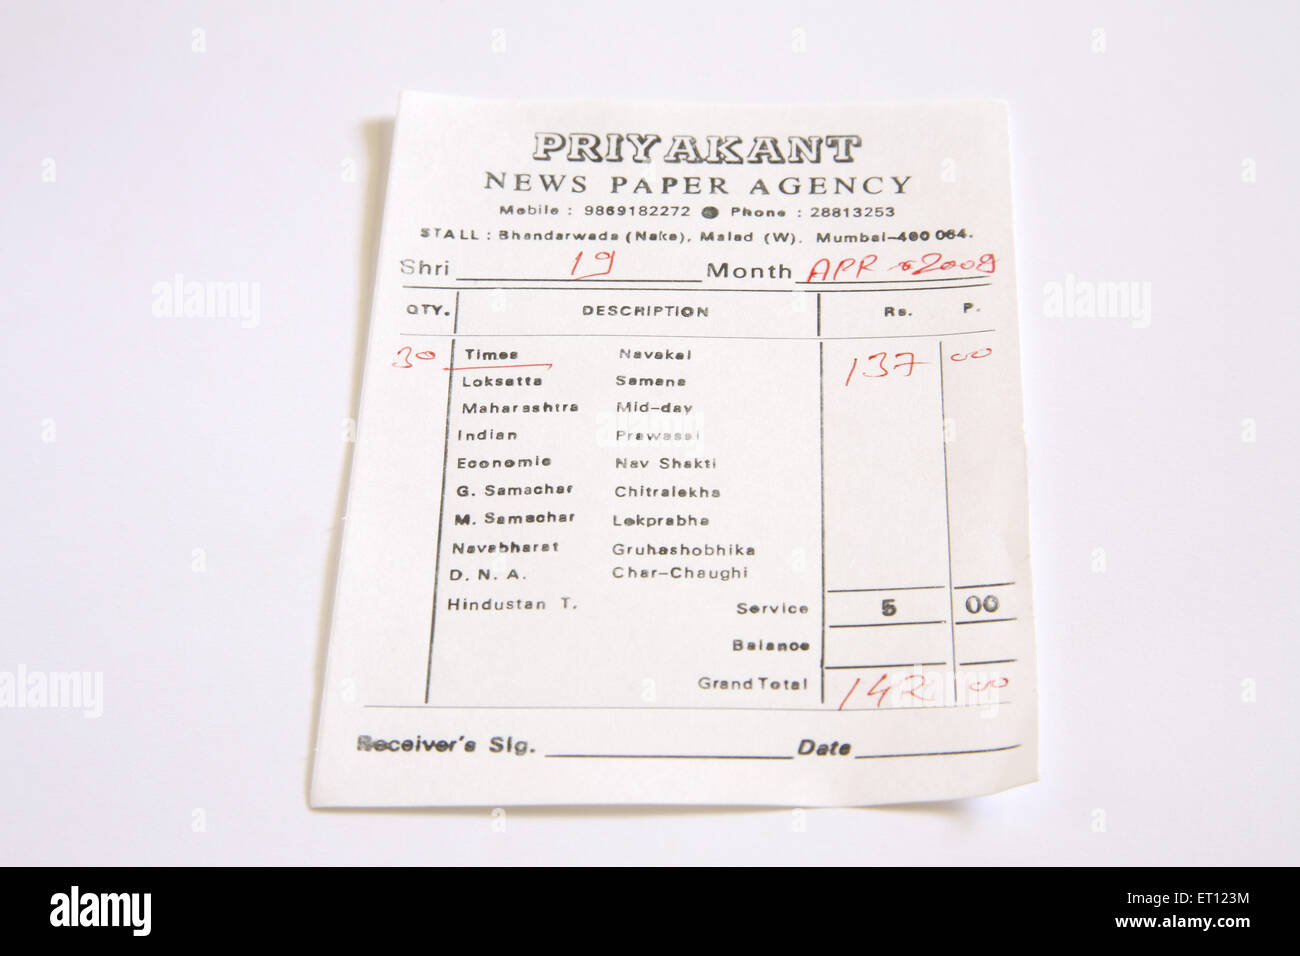 PRIYAKANT
NEWS PAPER AGENCY
Mobile : 9869182272 ● Phone : 28813253
STALL : Bhandarwada (Naka), Malad (W), Mumbai-400 064.
Shri 19 Month APR 2009
QTY. DESCRIPTION Rs. P.
30 Times Navakal 137 00
Loksatta Samana
Maharashtra Mid-day
Indian Prawassi
Economic Nav Shakti
G. Samachar Chitralekha
M. Samachar Lokprabha
Navabharat Gruhashobhika
D. N. A. Char-Chaughi
Hindustan T. Service 5 00
Balance
Grand Total 142 00
Receiver's Sig. Date
alamy
Image ID: ET123M
www.alamy.com